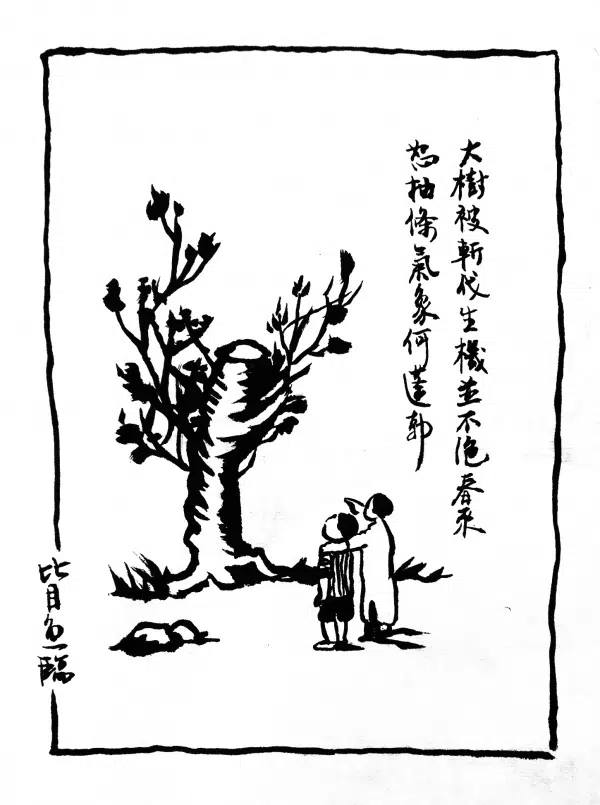 大樹被斬伐生機並不絕春來
怒抽條氣象何蓬勃
比目魚臨